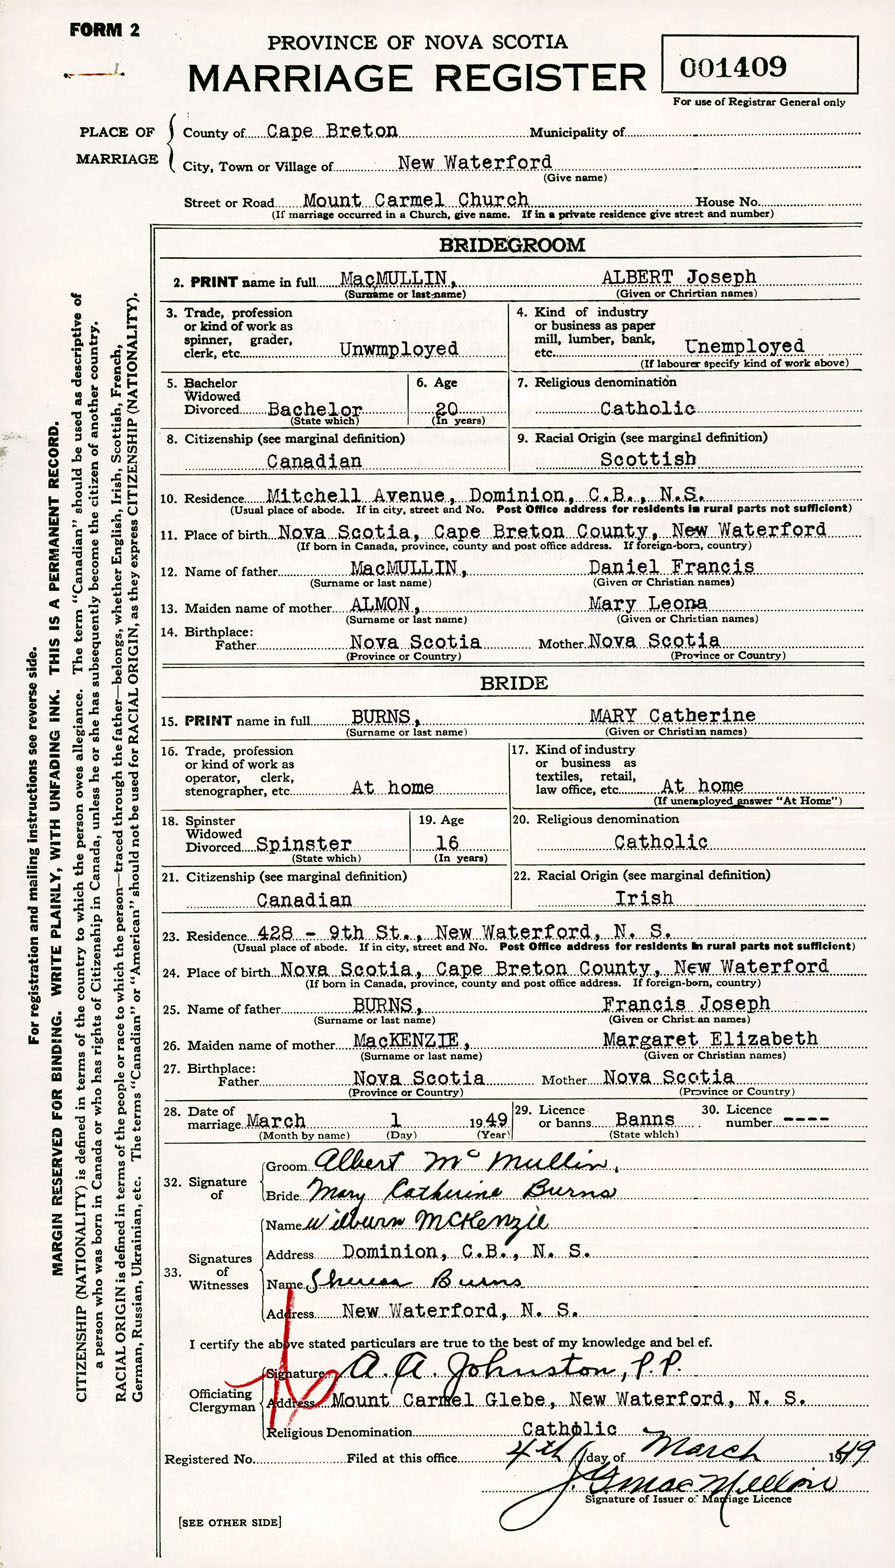 FORM 2
PROVINCE OF NOVA SCOTIA
MARRIAGE REGISTER
001409
For use of Registrar General only
PLACE OF MARRIAGE
County of Cape Breton Municipality of
City, Town or Village of New Waterford
(Give name)
Street or Road Mount Carmel Church House No.
(If marriage occurred in a Church, give name. If in a private residence give street and number)
BRIDEGROOM
2. PRINT name in full MacMULLIN, ALBERT Joseph
(Surname or last name) (Given or Christian names)
3. Trade, profession or kind of work as spinner, grader, clerk, etc. Unwmployed
4. Kind of industry or business as paper mill, lumber, bank, etc. Unemployed
(If labourer specify kind of work above)
5. Bachelor Widowed Divorced Bachelor
(State which)
6. Age 20
(In years)
7. Religious denomination
Catholic
8. Citizenship (see marginal definition)
Canadian
9. Racial Origin (see marginal definition)
Scottish
10. Residence Mitchell Avenue, Dominion, C.B., N.S.
(Usual place of abode. If in city, street and No. Post Office address for residents in rural parts not sufficient)
11. Place of birth Nova Scotia, Cape Breton County, New Waterford
(If born in Canada, province, county and post office address. If foreign-born, country)
12. Name of father MacMULLIN, Daniel Francis
(Surname or last name) (Given or Christian names)
13. Maiden name of mother ALMON, Mary Leona
(Surname or last name) (Given or Christian names)
14. Birthplace:
Father Nova Scotia Mother Nova Scotia
(Province or Country) (Province or Country)
BRIDE
15. PRINT name in full BURNS, MARY Catherine
(Surname or last name) (Given or Christian names)
16. Trade, profession or kind of work as operator, clerk, stenographer, etc. At home
17. Kind of industry or business as textiles, retail, law office, etc. At home
(If unemployed answer "At Home")
18. Spinster Widowed Divorced Spinster
(State which)
19. Age 16
(In years)
20. Religious denomination
Catholic
21. Citizenship (see marginal definition)
Canadian
22. Racial Origin (see marginal definition)
Irish
23. Residence 428 - 9th St., New Waterford, N. S.
(Usual place of abode. If in city, street and No. Post Office address for residents in rural parts not sufficient)
24. Place of birth Nova Scotia, Cape Breton County, New Waterford
(If born in Canada, province, county and post office address. If foreign-born, country)
25. Name of father BURNS, Francis Joseph
(Surname or last name) (Given or Christian names)
26. Maiden name of mother MacKENZIE, Margaret Elizabeth
(Surname or last name) (Given or Christian names)
27. Birthplace:
Father Nova Scotia Mother Nova Scotia
(Province or Country) (Province or Country)
28. Date of marriage March 1 1949
(Month by name) (Day) (Year)
29. Licence or banns Banns
(State which)
30. Licence number ----
32. Signature of
Groom Albert McMullin,
Bride Mary Catherine Burns
33. Signatures of Witnesses
Name Wilburn McKenzie
Address Dominion, C.B., N. S.
Name Theresa Burns
Address New Waterford, N. S.
I certify the above stated particulars are true to the best of my knowledge and belief.
Officiating Clergyman
Signature A. A. Johnston, P.P.
Address Mount Carmel Glebe, New Waterford, N. S.
Religious Denomination Catholic
Registered No. Filed at this office 4th day of March 1949
J. G. MacMullin
Signature of Issuer of Marriage Licence
[SEE OTHER SIDE]
For registration and mailing instructions see reverse side.
MARGIN RESERVED FOR BINDING. WRITE PLAINLY, WITH UNFADING INK. THIS IS A PERMANENT RECORD.
CITIZENSHIP (NATIONALITY) is defined in terms of the country to which the person owes allegiance. The term "Canadian" should be used as descriptive of
a person who was born in Canada or who has rights of Citizenship in Canada, unless he or she has subsequently become the citizen of another country.
RACIAL ORIGIN is defined in terms of the people or race to which the person—traced through the father—belongs, whether English, Irish, Scottish, French,
German, Russian, Ukrainian, etc. The terms "Canadian" or "American" should not be used for RACIAL ORIGIN, as they express CITIZENSHIP (NATIONALITY).